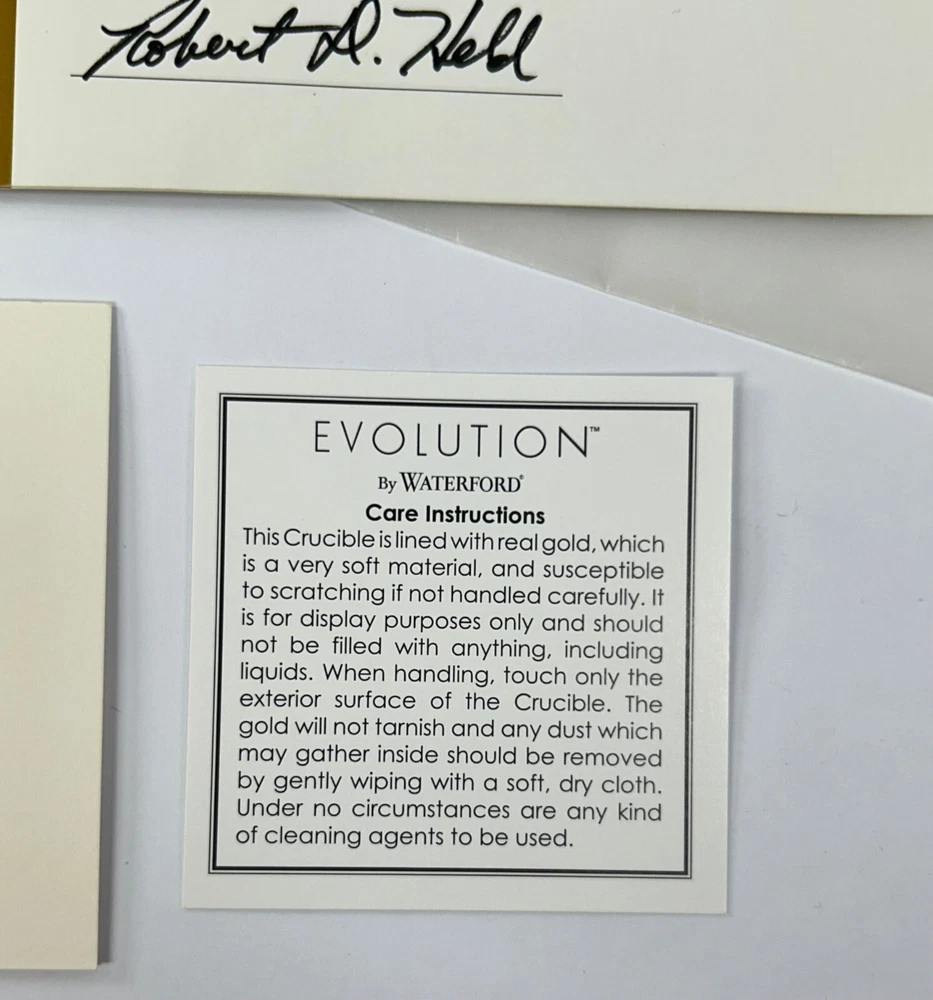 Robert D. Held
EVOLUTION™
By WATERFORD®
Care Instructions
This Crucible is lined with real gold, which
is a very soft material, and susceptible
to scratching if not handled carefully. It
is for display purposes only and should
not be filled with anything, including
liquids. When handling, touch only the
exterior surface of the Crucible. The
gold will not tarnish and any dust which
may gather inside should be removed
by gently wiping with a soft, dry cloth.
Under no circumstances are any kind
of cleaning agents to be used.